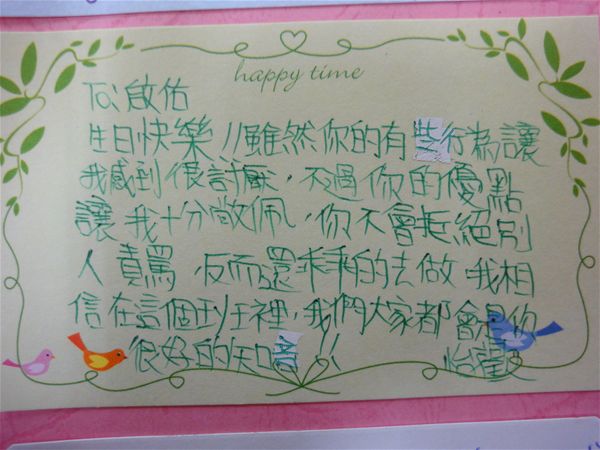 happy time
To:啟佑
生日快樂!!雖然你的有些行為讓
我感到很討厭,不過你的優點
讓我十分敬佩,你不會拒絕別
人責罵,反而還乖乖的去做。我相
信在這個班裡,我們大家都會是你
很好的知音!!
怡萱